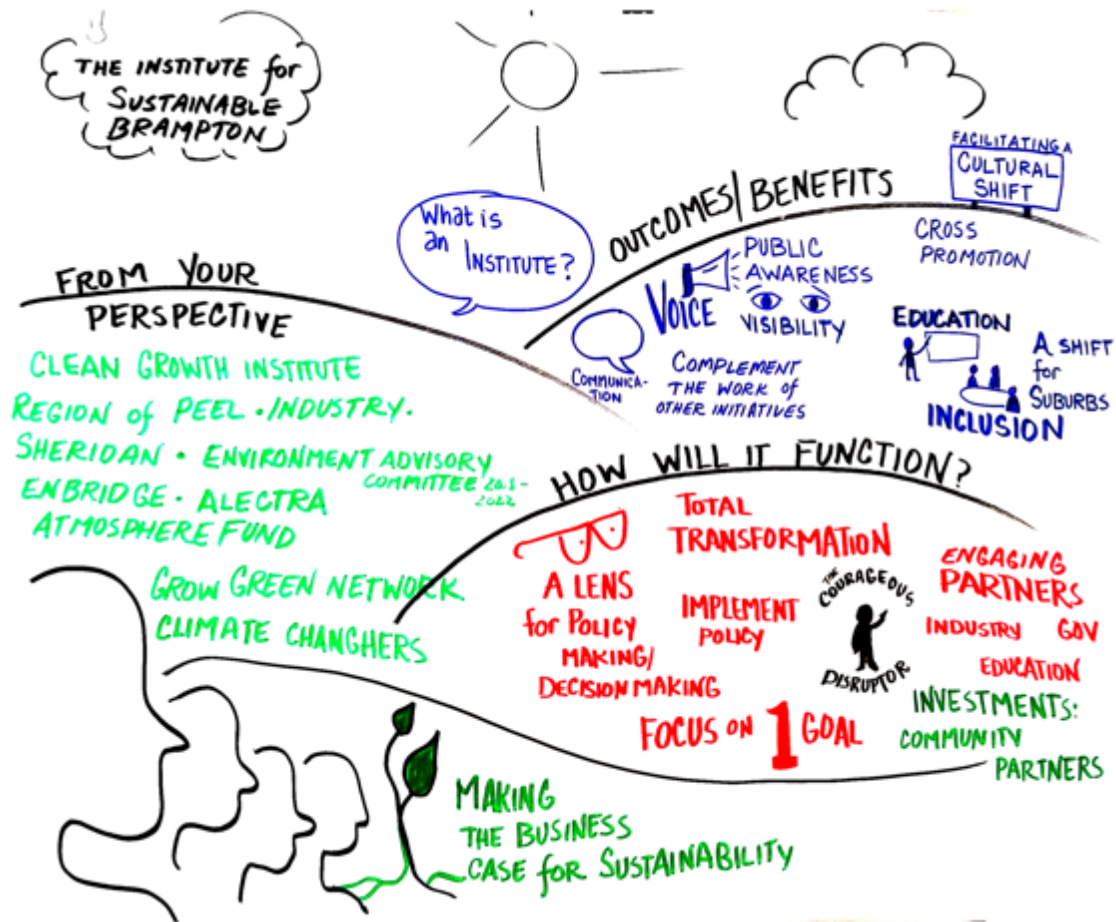 THE INSTITUTE for
SUSTAINABLE
BRAMPTON
What is
an INSTITUTE?
FROM YOUR
PERSPECTIVE
CLEAN GROWTH INSTITUTE
REGION of PEEL • INDUSTRY.
SHERIDAN • ENVIRONMENT ADVISORY
COMMITTEE
2022
ENBRIDGE • ALECTRA
ATMOSPHERE FUND
GROW GREEN NETWORK
CLIMATE CHANGHERS
OUTCOMES/BENEFITS
FACILITATING A
CULTURAL
SHIFT
CROSS
PROMOTION
VOICE
PUBLIC
AWARENESS
VISIBILITY
COMMUNICA-
TION
COMPLEMENT
THE WORK OF
OTHER INITIATIVES
EDUCATION
A SHIFT
for
SUBURBS
INCLUSION
HOW WILL IT FUNCTION?
A LENS
for POLICY
MAKING/
DECISION MAKING
TOTAL
TRANSFORMATION
IMPLEMENT
POLICY
THE
COURAGEOUS
DISRUPTOR
ENGAGING
PARTNERS
INDUSTRY GOV
EDUCATION
FOCUS ON 1 GOAL
INVESTMENTS:
COMMUNITY
PARTNERS
MAKING
THE BUSINESS
CASE for SUSTAINABILITY